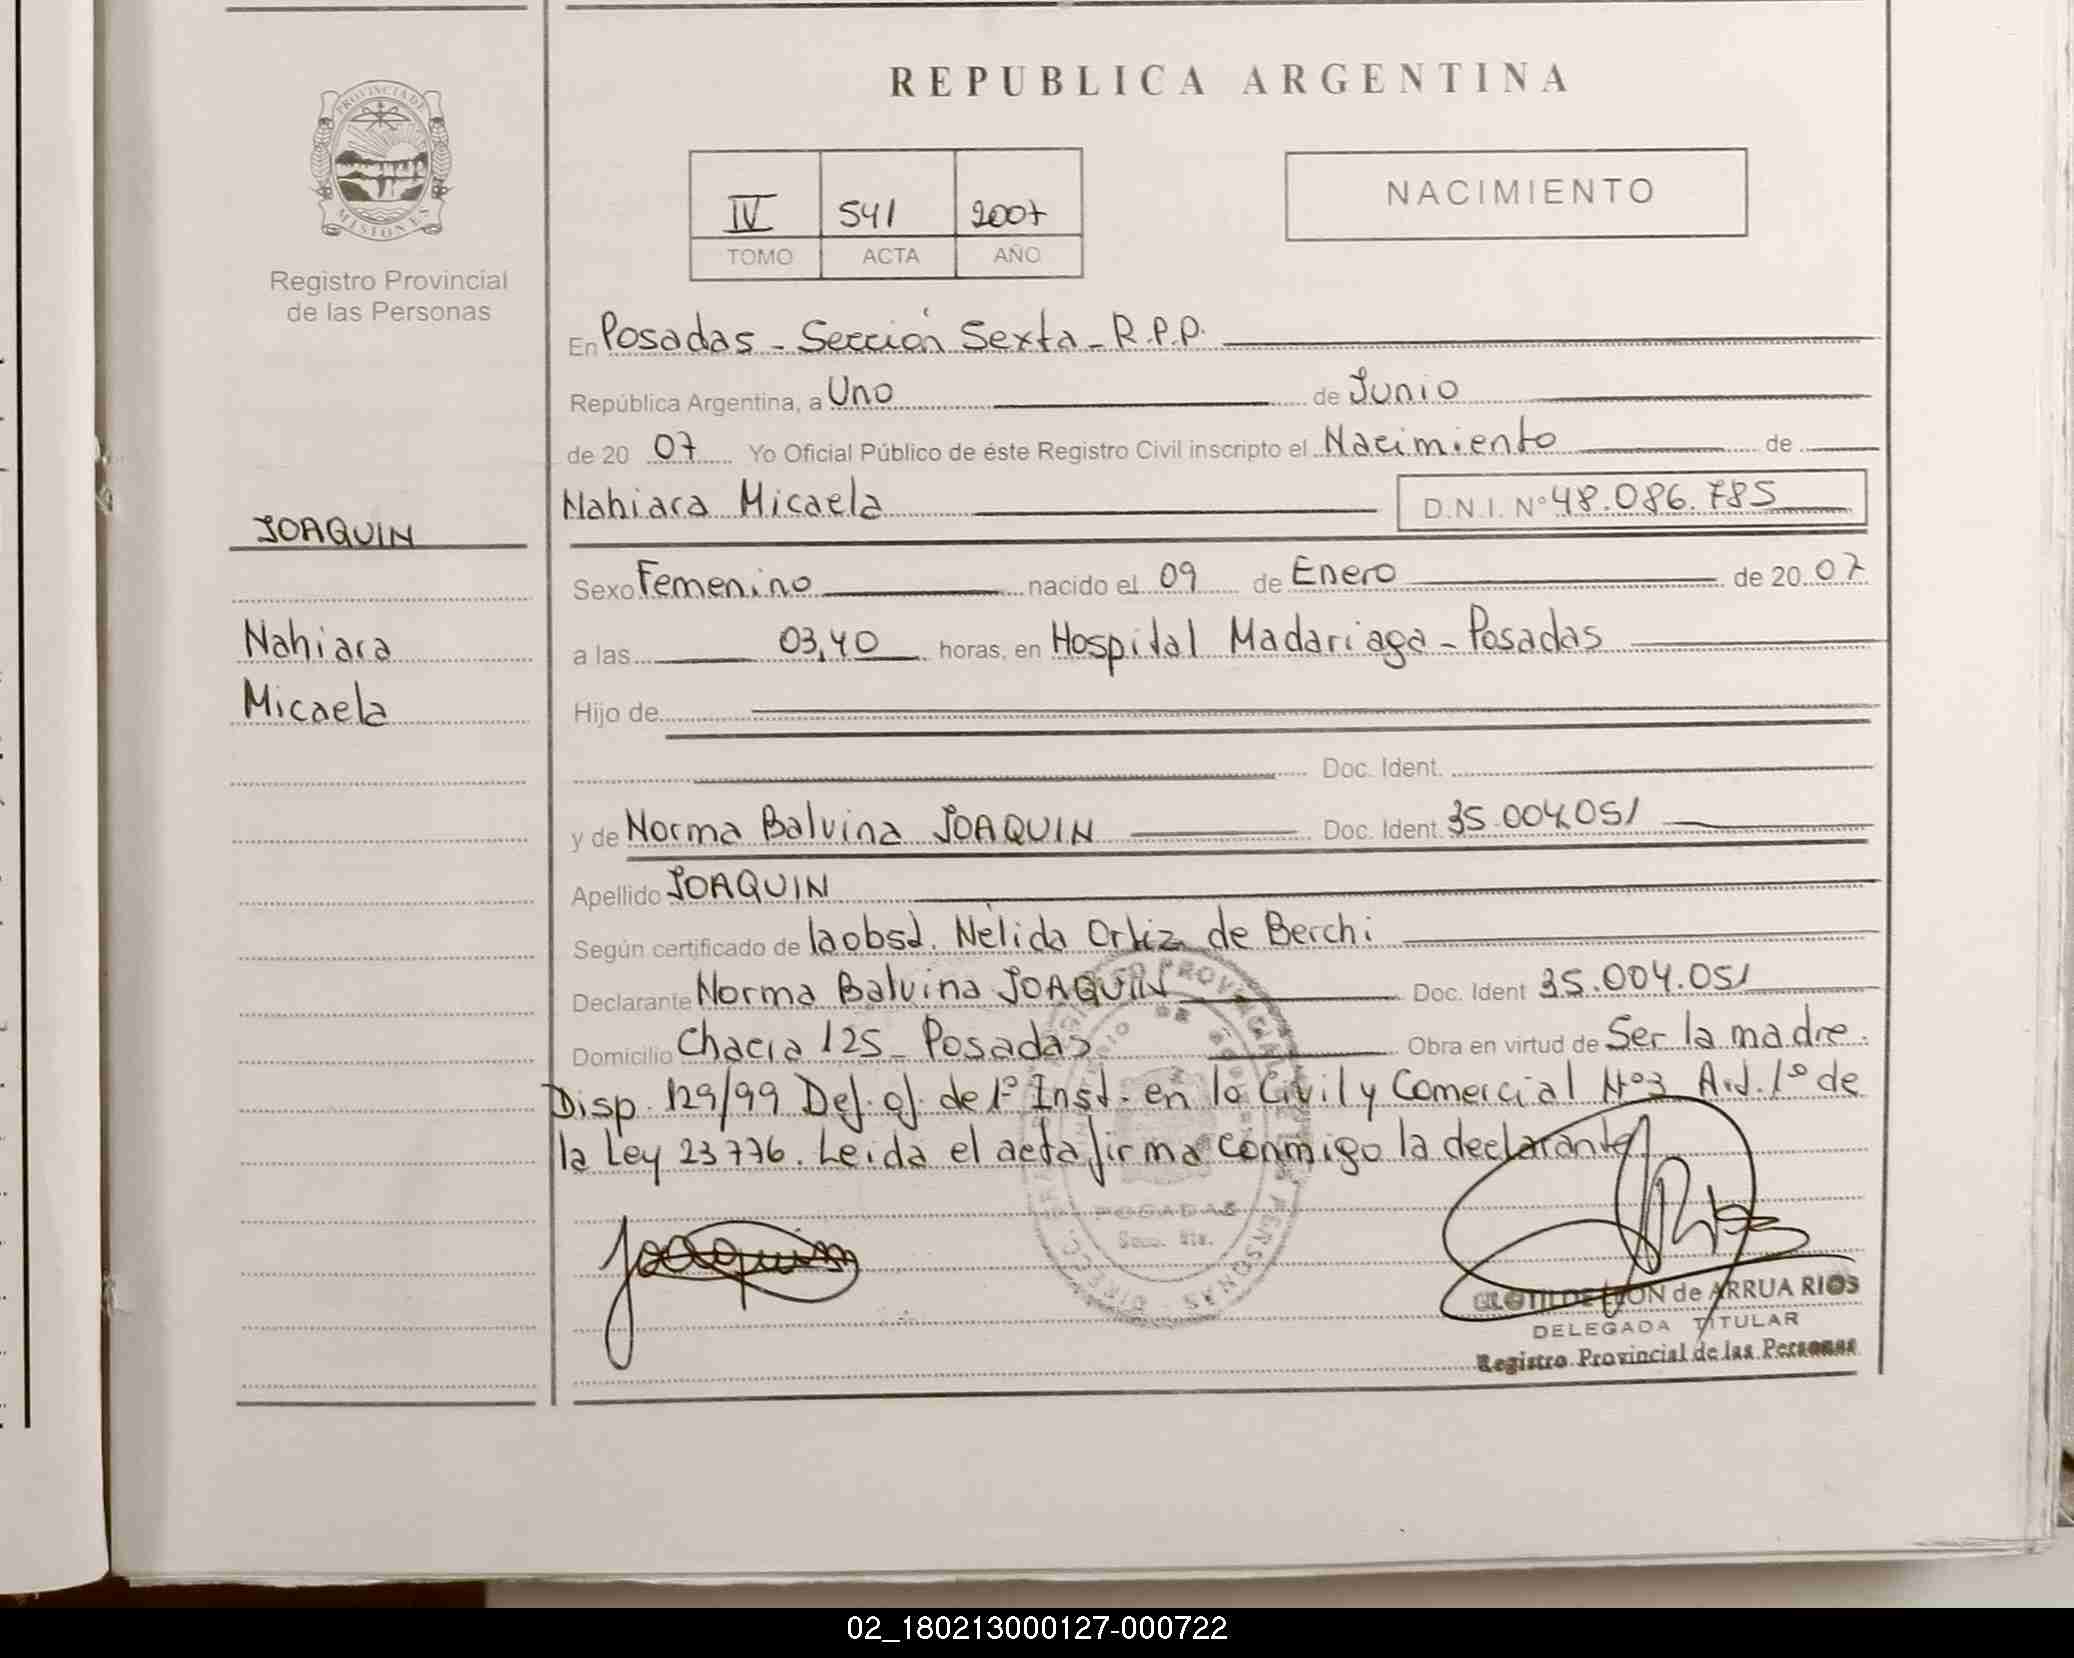 REPUBLICA ARGENTINA
PROVINCIA DE
MISIONES
Registro Provincial
de las Personas
IV 541 2007
TOMO ACTA AÑO
NACIMIENTO
En Posadas - Sección Sexta - R.P.P.
República Argentina, a Uno de Junio
de 20 07 Yo Oficial Público de éste Registro Civil inscripto el Nacimiento de
Nahiara Micaela D.N.I. Nº 48.086.785
JOAQUIN
Nahiara
Micaela
Sexo Femenino nacido el 09 de Enero de 20 07
a las 03,40 horas, en Hospital Madariaga - Posadas
Hijo de
Doc. Ident.
y de Norma Balvina JOAQUIN Doc. Ident. 35.004.051
Apellido JOAQUIN
Según certificado de la obst. Nélida Ortiz de Berchi
Declarante Norma Balvina JOAQUIN Doc. Ident 35.004.051
Domicilio Chacra 125 - Posadas Obra en virtud de Ser la madre.
Disp. 129/99 Def. of. de 1º Inst. en lo Civil y Comercial Nº3 Art. 1º de
la Ley 23776. Leida el acta firma conmigo la declarante
POSADAS
Secc. 6ta.
Joaquin
CLOTILDE LEON de ARRUA RIOS
DELEGADA TITULAR
Registro Provincial de las Personas
02_180213000127-000722